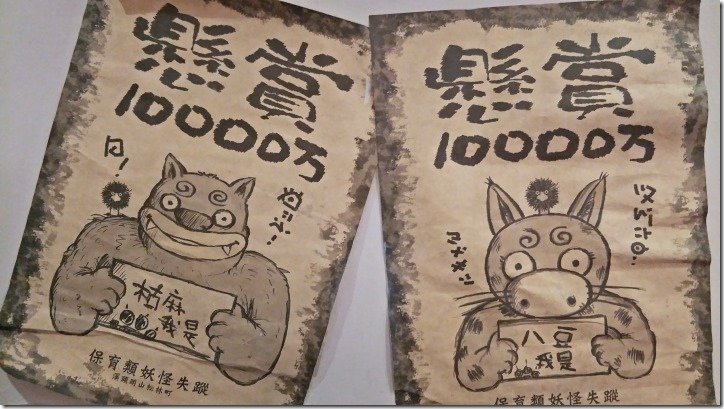 懸賞
10000万
日!
枯麻
我是
保育類妖怪失蹤
溪頭明山松林町
懸賞
10000万
八豆
我是
保育類妖怪失蹤